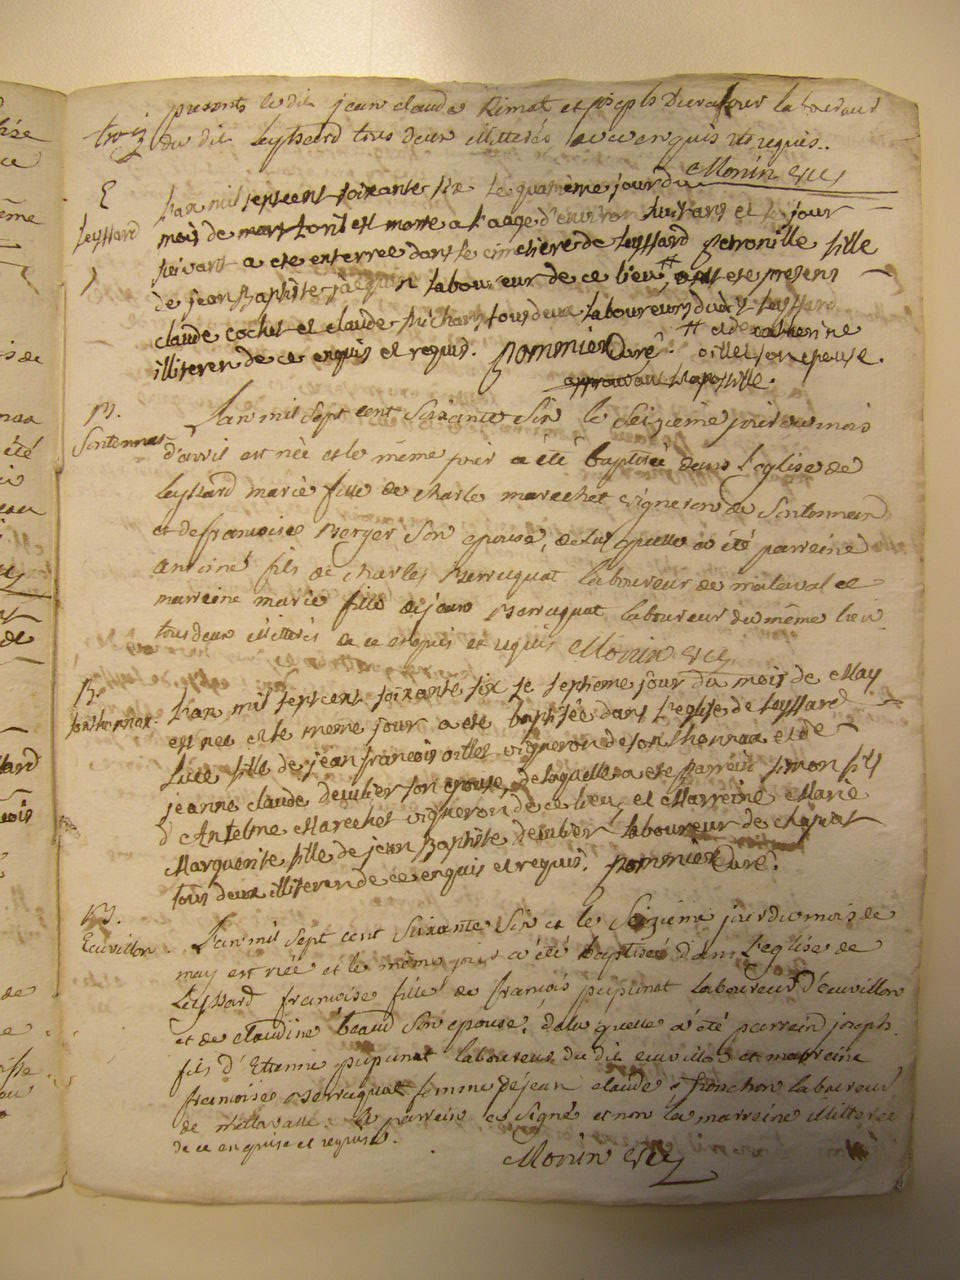 presents le dit jean claude Rimat et joseph laboureur
trois
du dit leyssard tous deux illitterés avec enquis et requis..
Monin vic
E
Leyssard
L'an mil septcent soixante six le quatrième jour du
mois de mars est morte a l'aage d'environ huit ans et le jour
suivant a ete enterree dans le cimetiere de leyssard petronille fille
de jean Baptiste jaquin laboureur de ce lieu, # ont ete presens
claude cochet et claude tous deux laboureurs dudit leyssard
# et de catherine
illiteren de ce enquis et requis. pommier Curé. oillet son epouse.
approuvant l'apostille.
B.
Sontonnas
L'an mil sept cent soixante six le seizième jour du mois
d'avril est née et le même jour a été baptisée dans l'eglise de
leyssard marie fille de charle marechet vigneron de Sontonnas
et de francoise Berger son epouse, de laquelle a été parreine
antoine fils de charles Berruquat laboureur de malaval et
marreine marie fille de jean Berruquat laboureur du même lieu
tous deux illitterés de ce enquis et requis Monin vic
B.
sonthonnax.
L'an mil septcent soixante six le septieme jour du mois de May
est nee et le meme jour a ete baptisée dans l'eglise de leyssard
fille de jean francois oillet vigneron de sonthonnax et de
jeanne claude deulier son epouse, de laquelle a ete parrein simon fils
d'Antelme Marechet vigneron de ce lieu, et Marreine Marie
Marguerite fille de jean Baptiste deulier laboureur de
tous deux illiteren de ce enquis et requis. pommier Curé.
B.
Ecuvillon
L'an mil sept cent soixante six et le seizieme jour du mois de
may est née et le même jour a été baptisée dans l'eglise de
Leyssard francoise fille de francois pupunat laboureur d'ecuvillon
et de claudine beaud son epouse, de la quelle a été parrein joseph
fils d'Etienne pupunat laboureur du dit ecuvillon et marreine
francoise Berruquat femme de jean claude laboureur
de mellavalle. le parrein a signé et non la marreine illitterée
de ce enquise et requise.
Monin vic